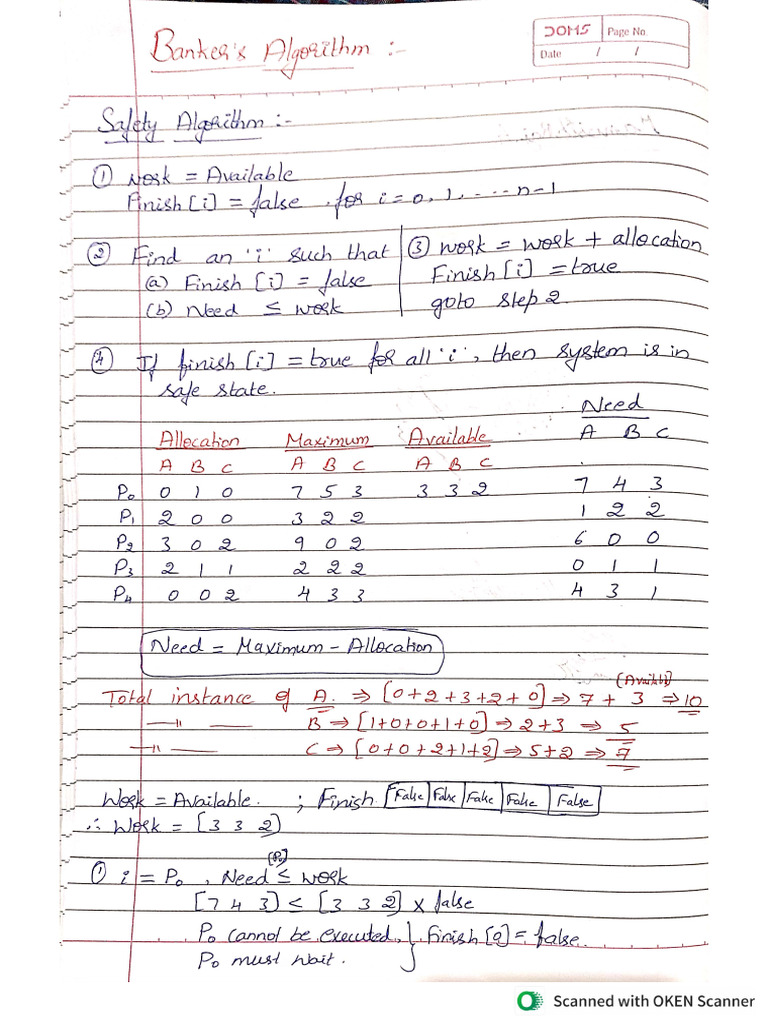 Banker's Algorithm :-
DOMS Page No.
Date / /
Safety Algorithm :-
① work = Available
Finish [i] = false , for i = 0, 1, ---- n-1
② Find an 'i' such that
(a) Finish [i] = false
(b) Need ≤ work
③ work = work + allocation
Finish [i] = true
goto step 2
④ If finish [i] = true for all 'i', then system is in
safe state.
Need
Allocation Maximum Available A B C
A B C A B C A B C
P0 0 1 0 7 5 3 3 3 2 7 4 3
P1 2 0 0 3 2 2 1 2 2
P2 3 0 2 9 0 2 6 0 0
P3 2 1 1 2 2 2 0 1 1
P4 0 0 2 4 3 3 4 3 1
Need = Maximum - Allocation
(Availbl)
Total instance of A. ⇒ [0+2+3+2+0] ⇒ 7 + 3 ⇒ 10
—"— B ⇒ [1+0+0+1+0] ⇒ 2+3 ⇒ 5
—"— C ⇒ [0+0+2+1+2] ⇒ 5+2 ⇒ 7
Work = Available. ; Finish False False False False False
∴ Work = [3 3 2]
① i = P0 , Need [P0] ≤ work
[7 4 3] ≤ [3 3 2] × false
P0 cannot be executed, } Finish [0] = false.
P0 must wait.
Scanned with OKEN Scanner